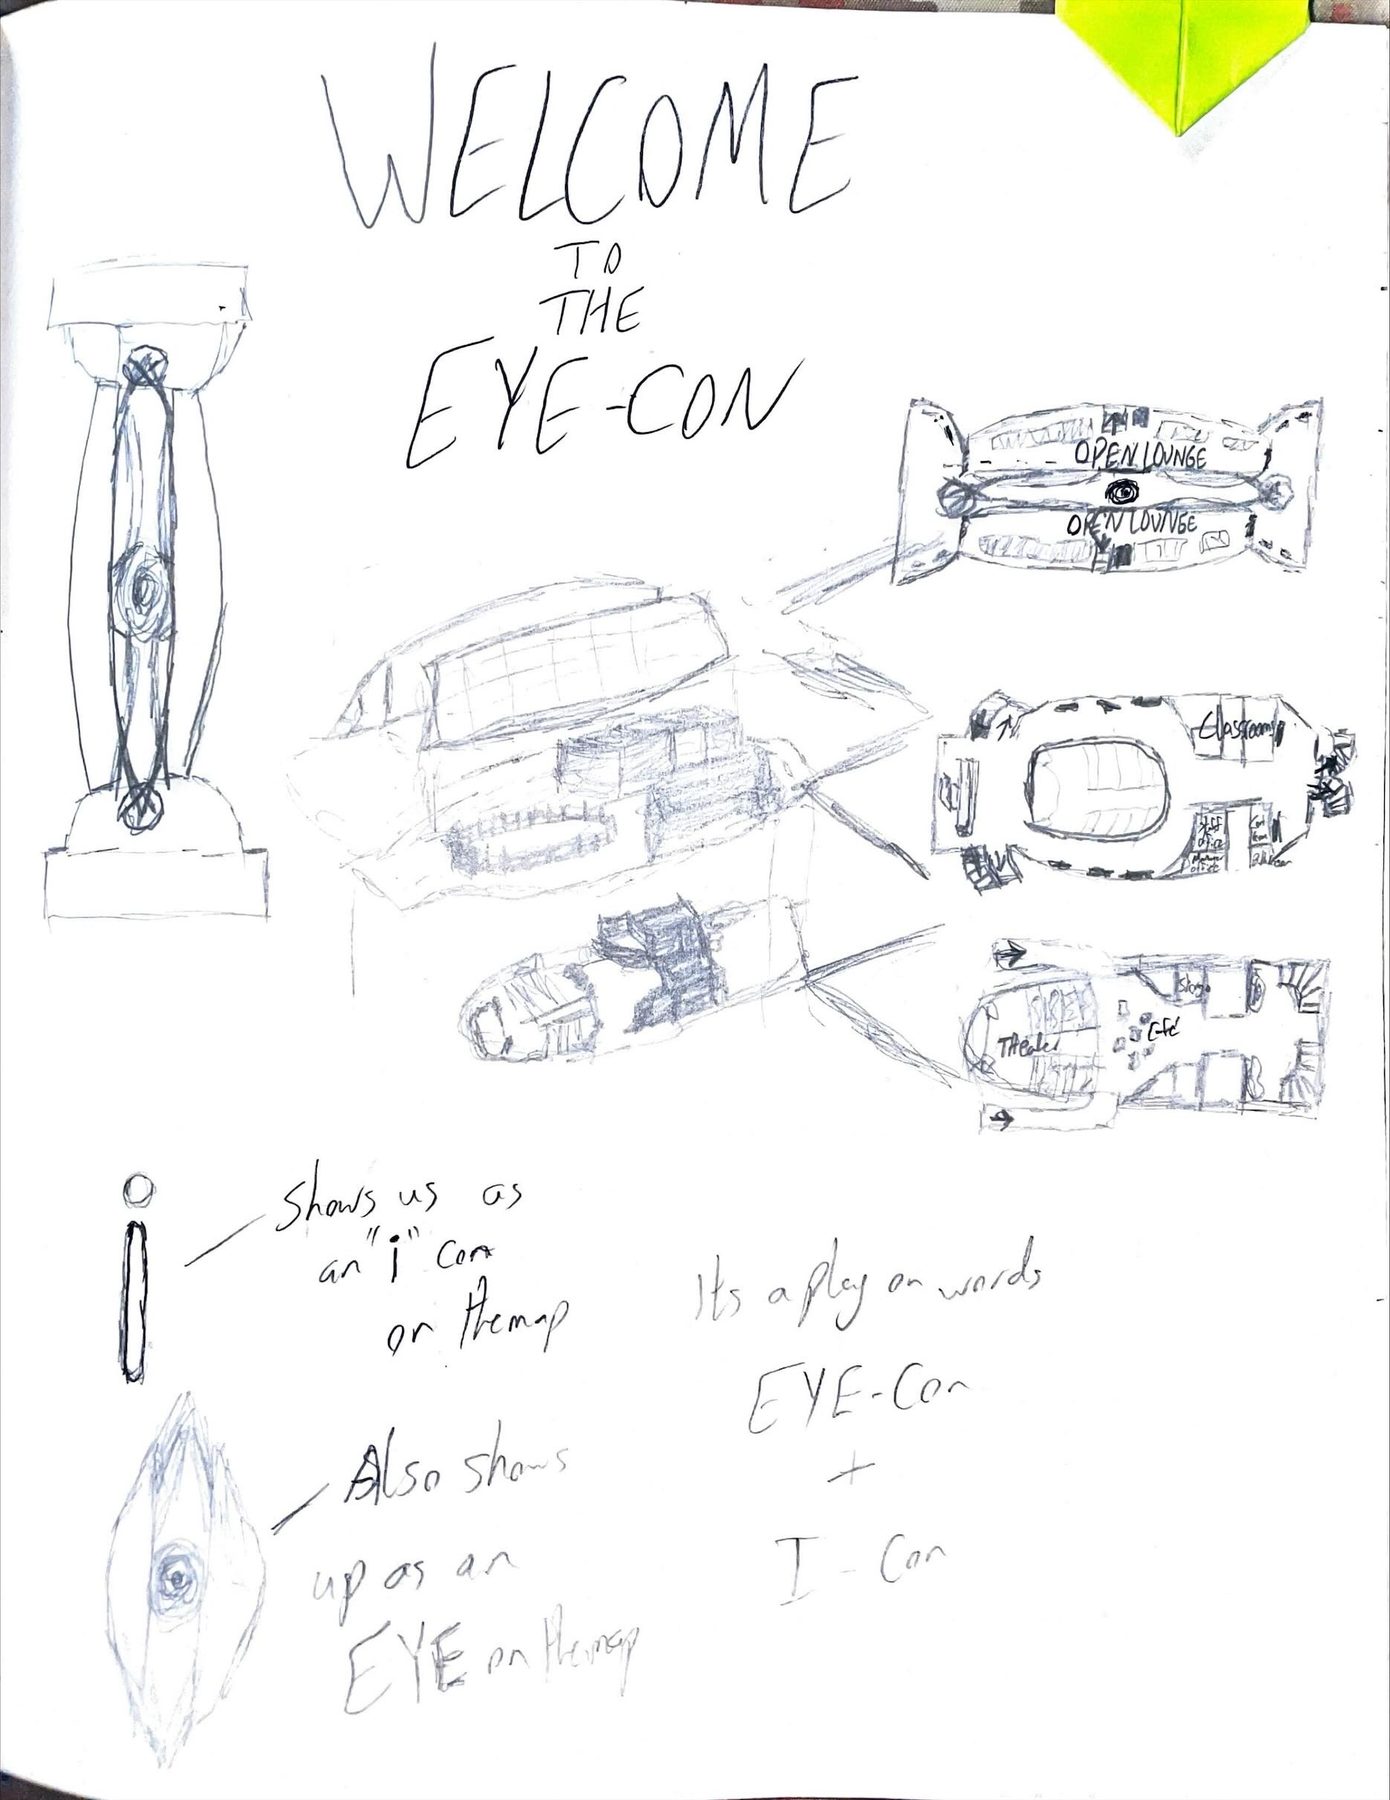 WELCOME
TO
THE
EYE-CON
OPEN LOUNGE
OPEN LOUNGE
Classrooms
Staff
office
Theater
Café
Shows us as
an "i" con
on the map
Also shows
up as an
EYE on the map
Its a play on words
EYE-Con
+
I - Con